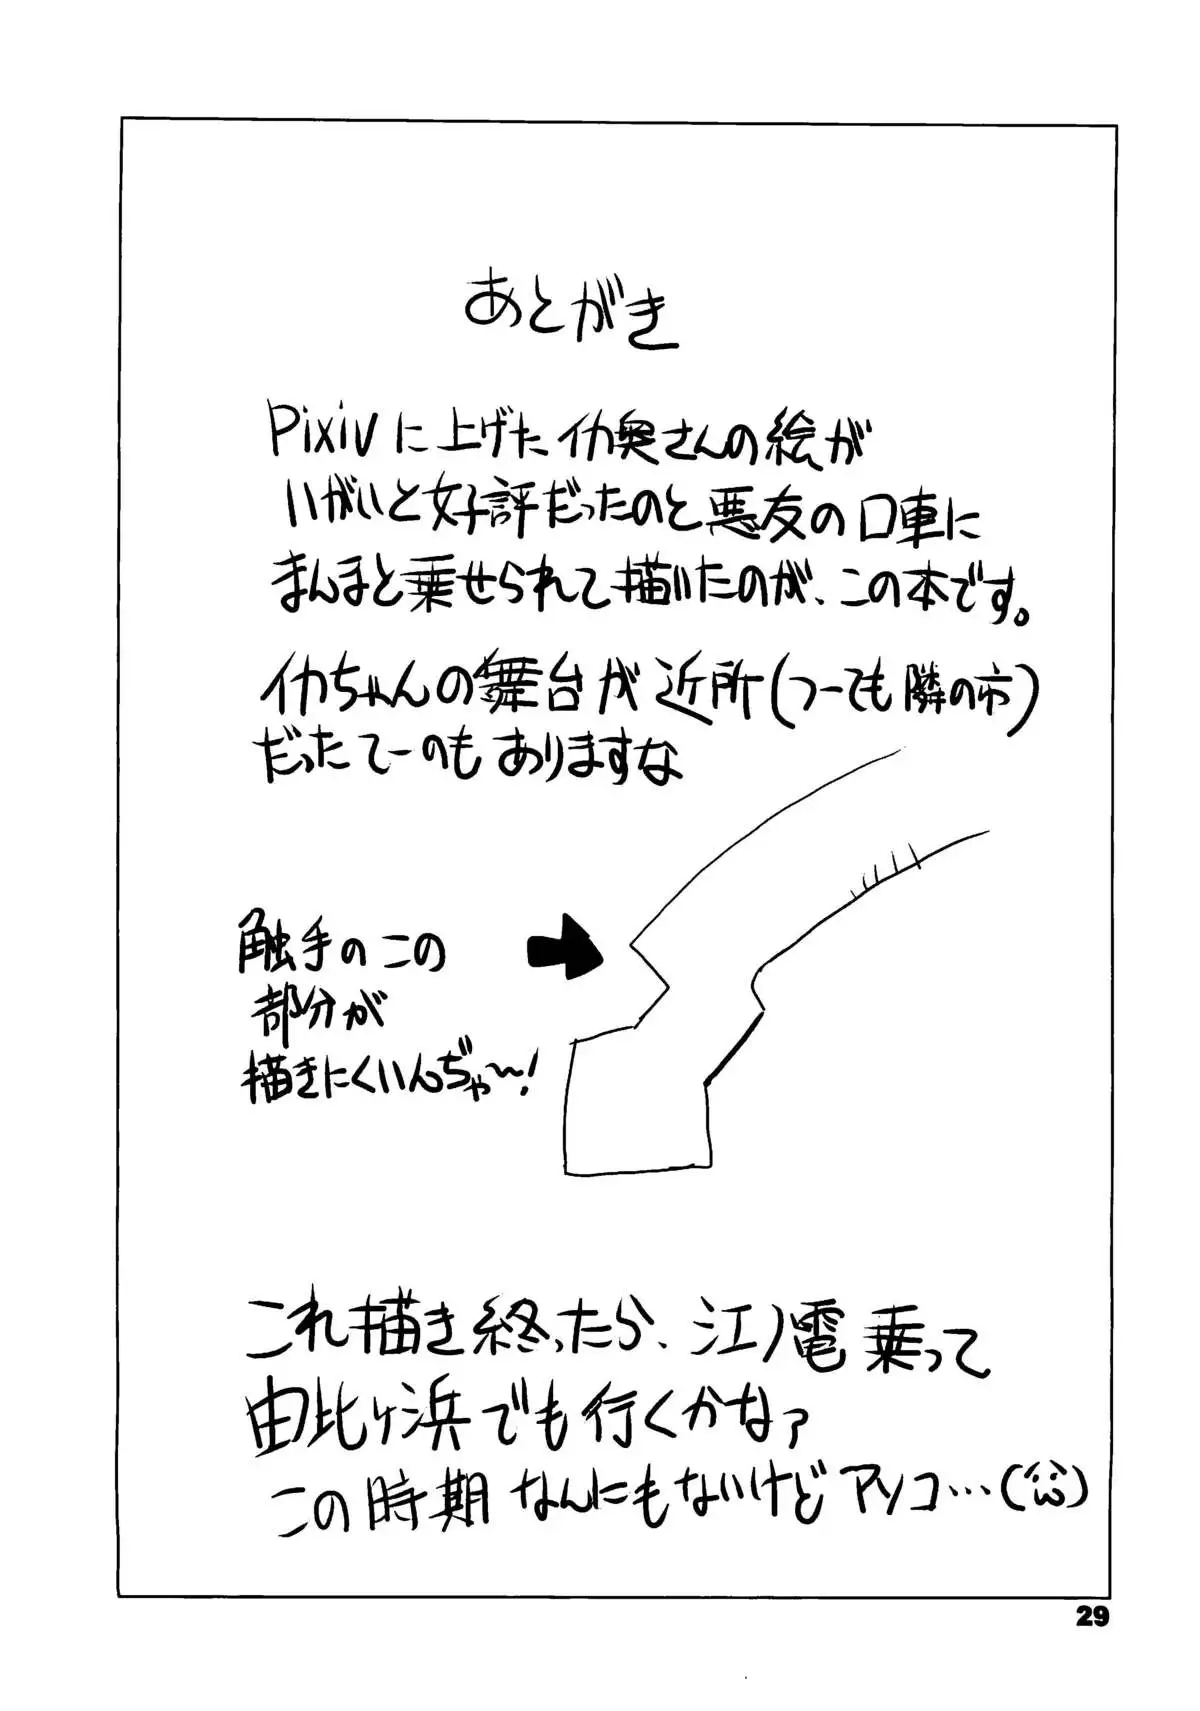 あとがき
Pixivに上げたイカ奥さんの絵が
いがいと好評だったのと悪友の口車に
まんまと乗せられて描いたのが、この本です。
イカちゃんの舞台が近所(つーても隣の市)
だったてーのもありますな
触手のこの
部分が
描きにくいんぢゃ〜!
これ描き終ったら、江ノ電乗って
由比ヶ浜でも行くかなァ
この時期なんにもないけどアソコ…(^ω^)
29